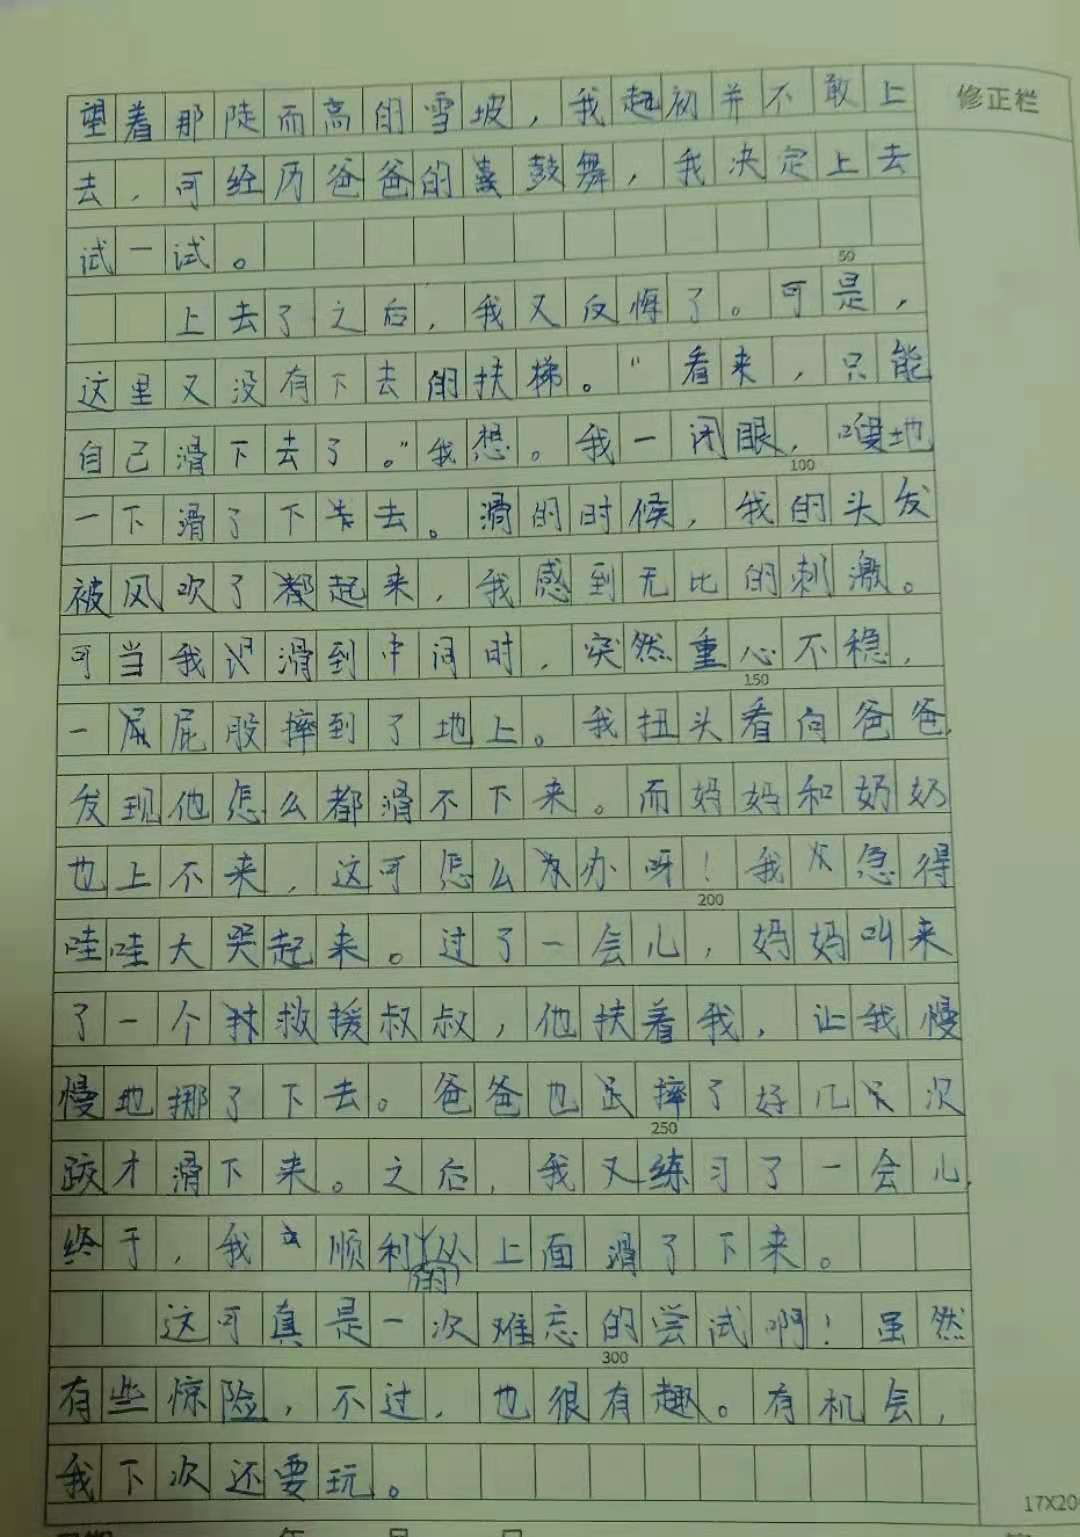 修正栏
望着那陡而高的雪坡，我起初并不敢上
去，可经历爸爸的鼓舞，我决定上去
试一试。
50
上去了之后，我又反悔了。可是，
这里又没有下去的扶梯。“看来，只能
自己滑下去了。”我想。我一闭眼，嗖地
100
一下滑了下去。滑的时候，我的头发
被风吹了起来，我感到无比的刺激。
可当我滑到中间时，突然重心不稳，
150
一屁股摔到了地上。我扭头看向爸爸，
发现他怎么都滑不下来。而妈妈和奶奶
也上不来，这可怎么办呀！我急得
200
哇哇大哭起来。过了一会儿，妈妈叫来
了一个救援叔叔，他扶着我，让我慢
慢地挪了下去。爸爸也摔了好几次
250
跤才滑下来。之后，我又练习了一会儿，
终于，我顺利的从上面滑了下来。
这可真是一次难忘的尝试啊！虽然
300
有些惊险，不过，也很有趣。有机会，
我下次还要玩。
17X20